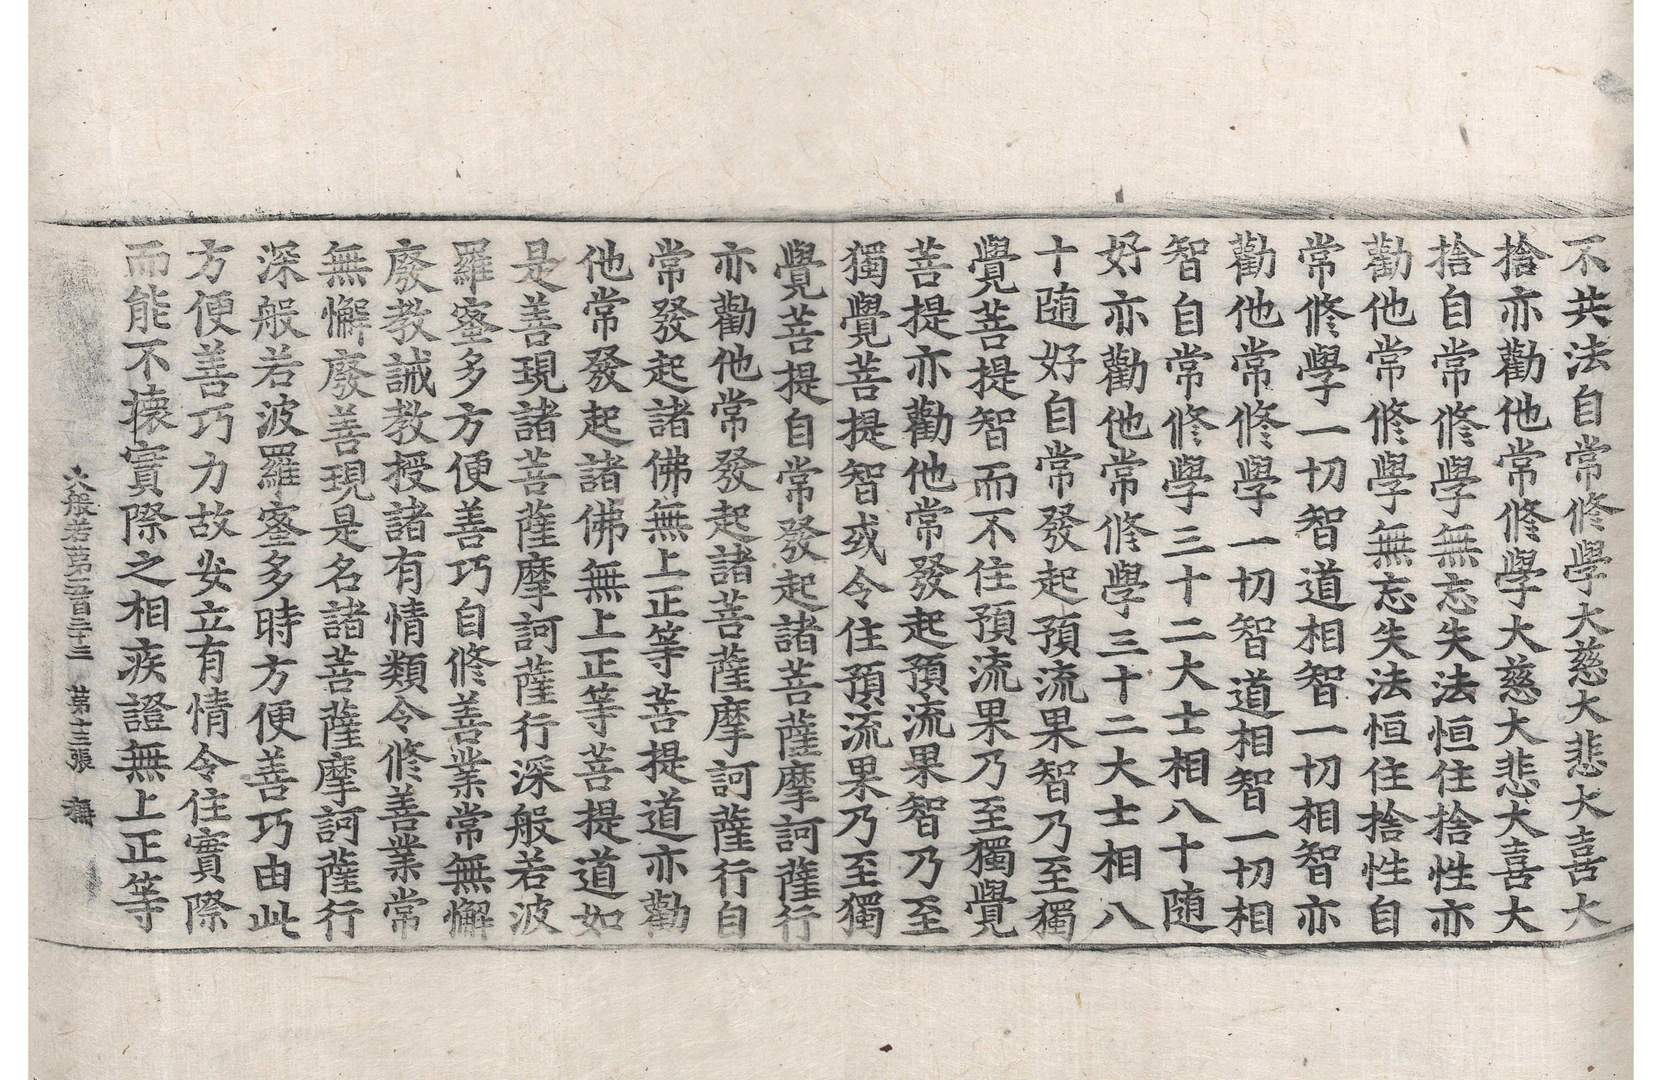 不共法自常修學大慈大悲大喜大
捨亦勸他常修學大慈大悲大喜大
捨自常修學無忘失法恒住捨性亦
勸他常修學無忘失法恒住捨性自
常修學一切智道相智一切相智亦
勸他常修學一切智道相智一切相
智自常修學三十二大士相八十随
好亦勸他常修學三十二大士相八
十随好自常發起預流果智乃至獨
覺菩提智而不住預流果乃至獨覺
菩提亦勸他常發起預流果智乃至
獨覺菩提智或令住預流果乃至獨
覺菩提自常發起諸菩薩摩訶薩行
亦勸他常發起諸菩薩摩訶薩行自
常發起諸佛無上正等菩提道亦勸
他常發起諸佛無上正等菩提道如
是善現諸菩薩摩訶薩行深般若波
羅蜜多方便善巧自修善業常無懈
廢教誡教授諸有情類令修善業常
無懈廢善現是名諸菩薩摩訶薩行
深般若波羅蜜多時方便善巧由此
方便善巧力故安立有情令住實際
而能不壞實際之相疾證無上正等
大般若第五百二十三 第十三張